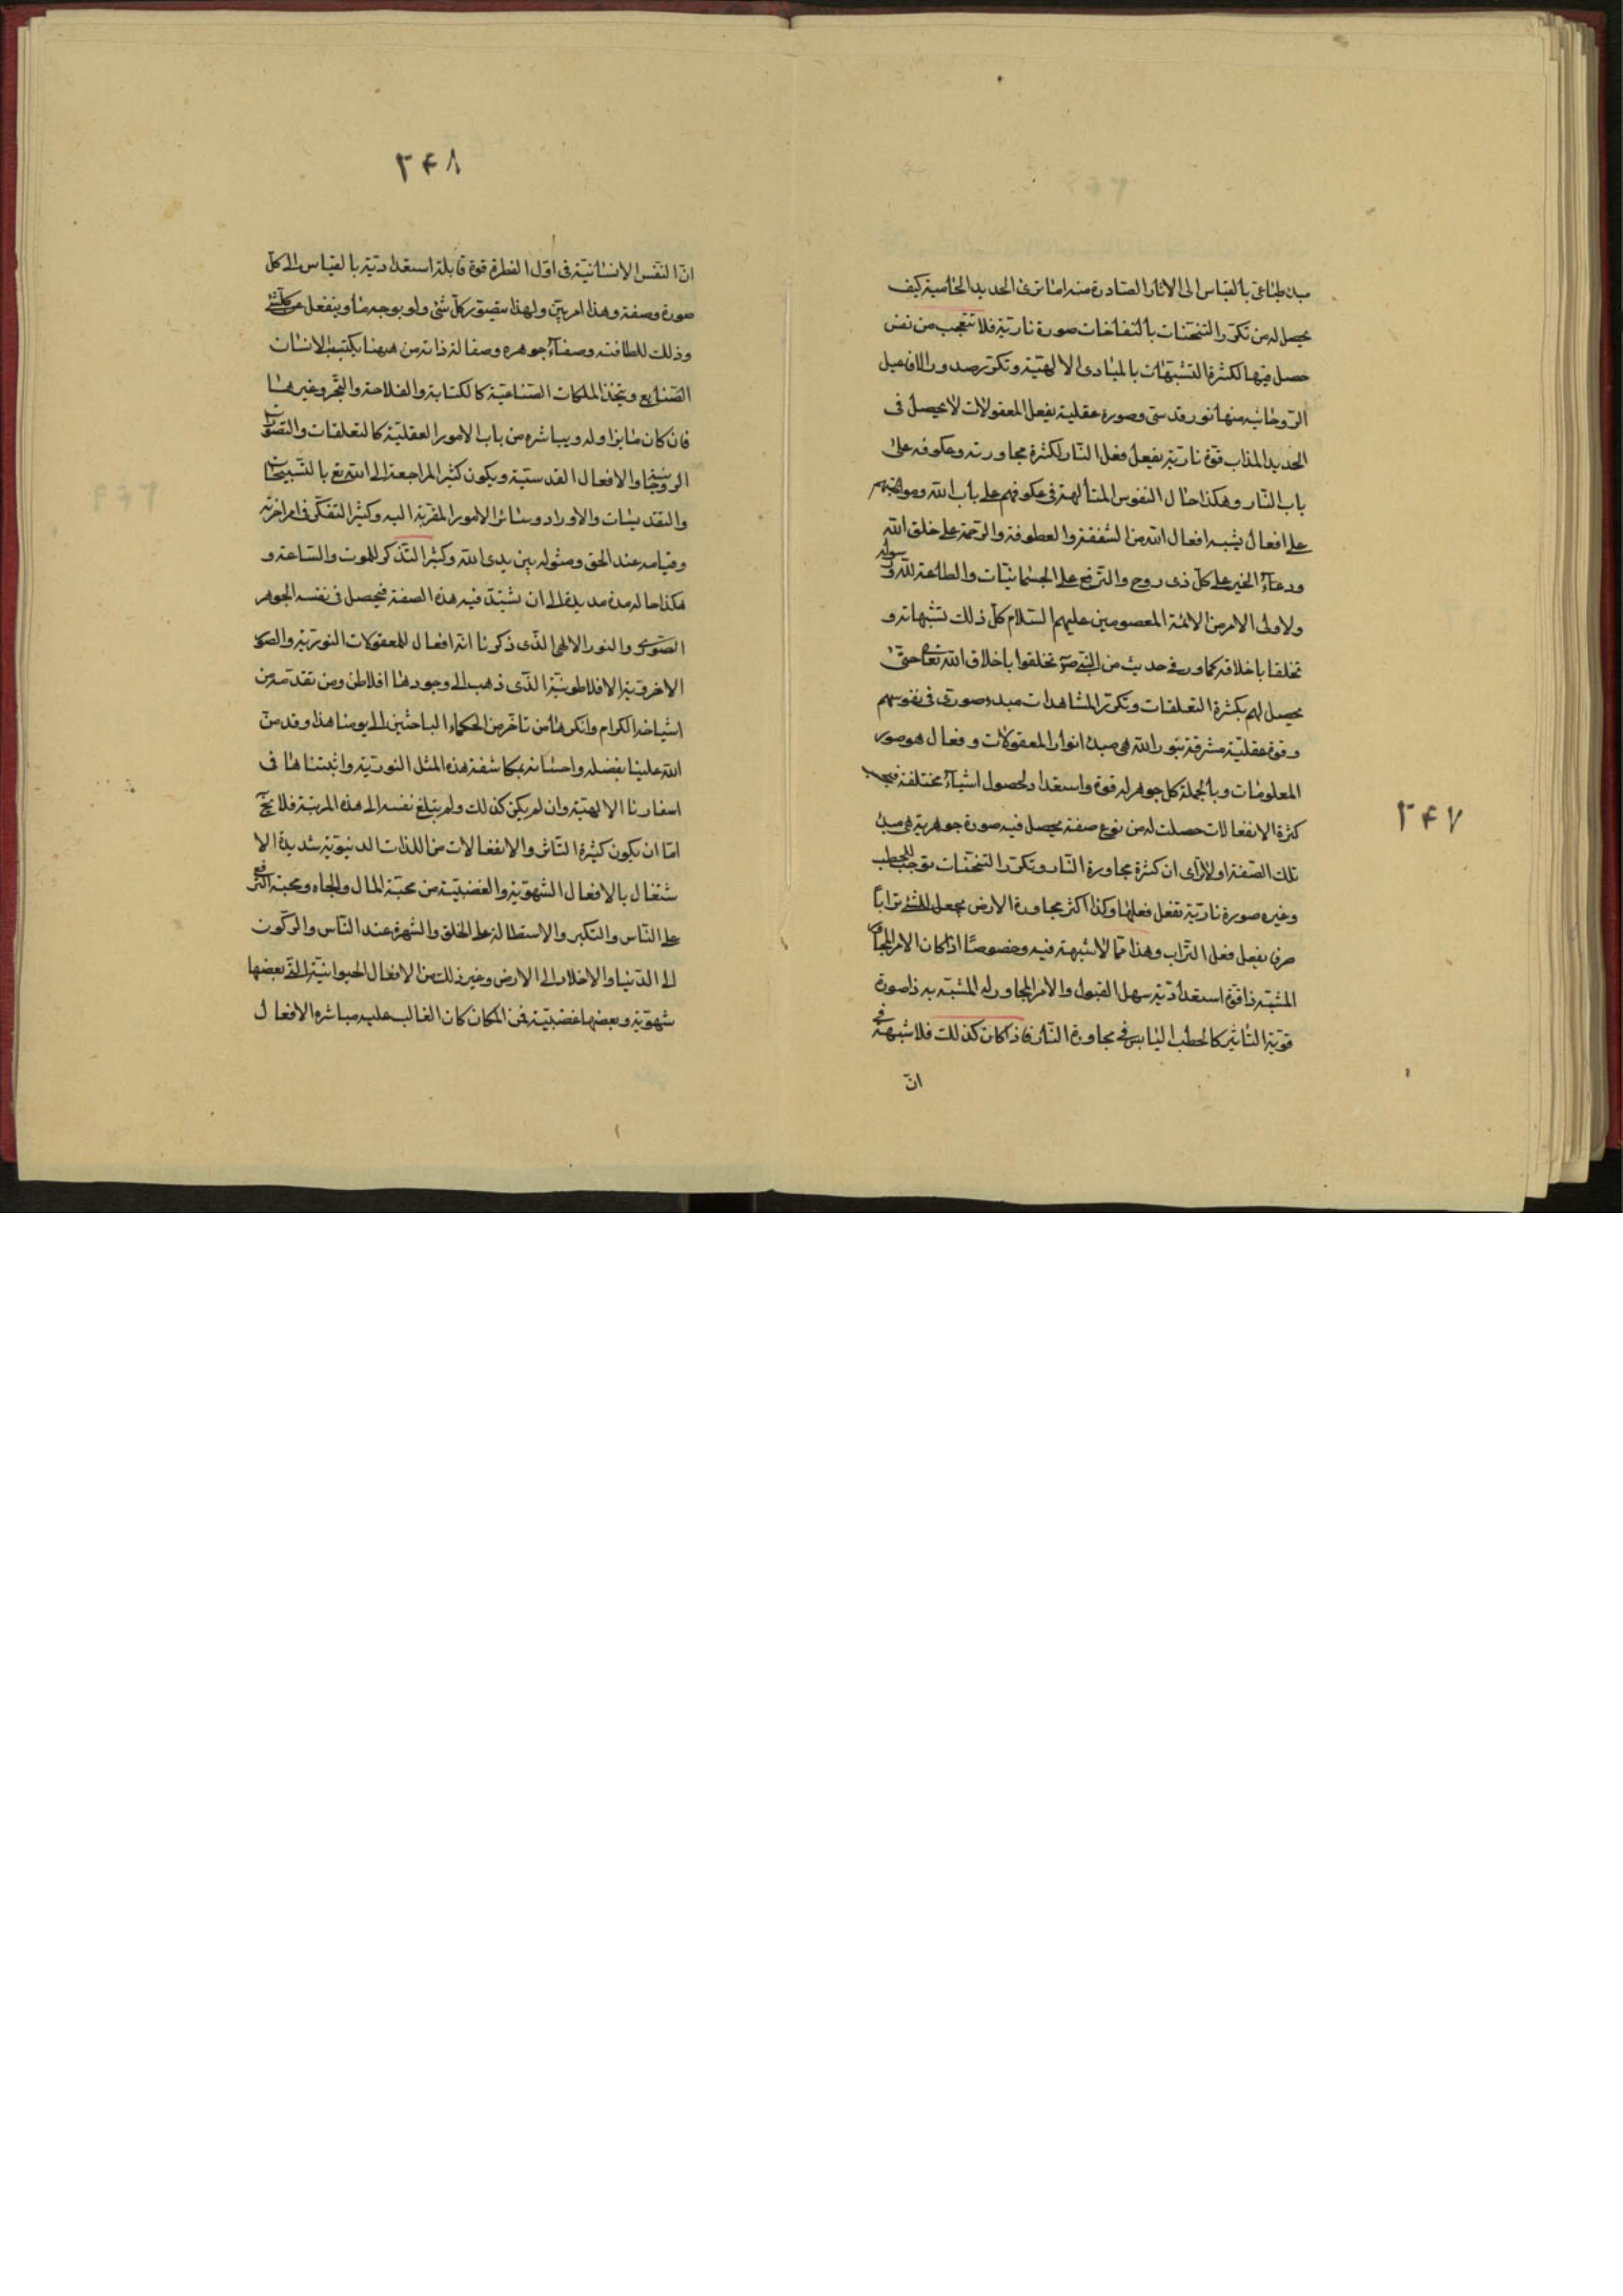 ۲۴۷
مبدء طباعى بالقياس الى الاثار الصادرة منه اما ترى الحديد الحامية كيف
يحصل له من تكرر التسخنات بالنفاخات صورة نارية فلا تتعجب من نفس
حصل فيها لكثرة التشبهات بالمبادى الالهية وتكرر صدور الافاعيل
الروحانيه منها نور قدسى وصورة عقلية يفعل المعقولات لا يحصل فى
الحديد المذاب قوة نارية يفعل فعل النار لكثرة مجاورته وعكوفه على
باب النار وهكذا حال النفوس المتألهة فى عكوفهم على باب الله ومواظبتهم
على افعال يشبه افعال الله من الشفقة والعطوفة والرحمة على خلق الله
ودعاء الخير على كل ذى روح والترفع على الجسمانيات والطاعة لله ورسوله
ولاولى الامر من الائمة المعصومين عليهم السلام كل ذلك تشبها به و
تخلقا باخلاقه كما ورد فى حديث من النبى ص تخلقوا باخلاق الله تعالى حتى
يحصل لهم بكثرة التعلقات وتكرر المشاهدات مبدء صورى فى نفوسهم
وقوة عقلية مشرقة بنور الله هى مبدء انوار المعقولات وفعال هو صور
المعلومات وبالجملة كل جوهر له قوة واستعداد لحصول اشياء مختلفة فبحسب
كثرة الانفعالات حصلت له من نوع صفة يحصل فيه صورة جوهرية هى مبدء
تلك الصفة اولا ترى ان كثرة مجاورة النار وتكرر التسخنات توجب للحطب
وغيره صورة نارية تفعل فعلها وكذا اكثر مجاورة الارض يجعل الشئ ترابا
صرفا يفعل فعل التراب وهذا مما لا شبهة فيه وخصوصا اذا كان الامر المجاور
المشبه ذا قوة استعدادية سهل القبول والامر المجاور له المشبه به ذا صورة
قوية التاثير كالحطب اليابس فى مجاورة النار فاذا كان كذلك فلا شبهة فى
ان
۲۴۸
ان النفس الانسانية فى اول الفطرة قوة قابلة استعدادية بالقياس الى كل
صورة وصفة وهذا امر بين ولهذا يتصور كل شئ ولو بوجه ما وينفعل عن كل شئ
وذلك للطافته وصفاء جوهره وصقالة ذاته من ههنا يكتسب الانسان
الصنايع ويتخذ الملكات الصناعية كالكتابة والفلاحة والتجر وغيرها
فان كان ما يزاوله ويباشره من باب الامور العقلية كالتعلقات والتصورات
الروحانية والافعال القدسية ويكون كثير المراجعة الى الله تع بالتسبيحات
والتقديسات والاوراد وسائر الامور المقربة اليه وكثير التفكر فى امر اخرته
وقيامه عند الحق ومثوله بين يدى الله وكثير التذكر للموت والساعة و
هكذا حاله مدة مديدة الى ان تشتد فيه هذه الصفة فيحصل فى نفسه الجوهر
الصورى والنور الالهى الذى ذكرنا انه افعال للمعقولات النورية والصور
الاخروية الافلاطونية الذى ذهب الى وجودها افلاطن ومن تقدمه من
اشياخه الكرام وانكرها من تاخر من الحكماء الباحثين الى يومنا هذا وقد من
الله علينا بفضله واحسانه بمكاشفة هذه المثل النورية واثبتناها فى
اسفارنا الالهية وان لم يكن كذلك ولم يبلغ نفسه الى هذه المرتبة فلا يخ
اما ان يكون كثيرة التاثر والانفعالات من اللذات الدنيوية شديدة الا
شتغال بالافعال الشهوية والغضبية من محبة المال والجاه ومحبة الترفع
على الناس والتكبر والاستطالة على الخلق والشهرة عند الناس والركون
الى الدنيا والاخلاد الى الارض وغير ذلك من الافعال الحيوانية التى بعضها
شهوية وبعضها غضبية فمن المكان كان الغالب عليه مباشره الافعال